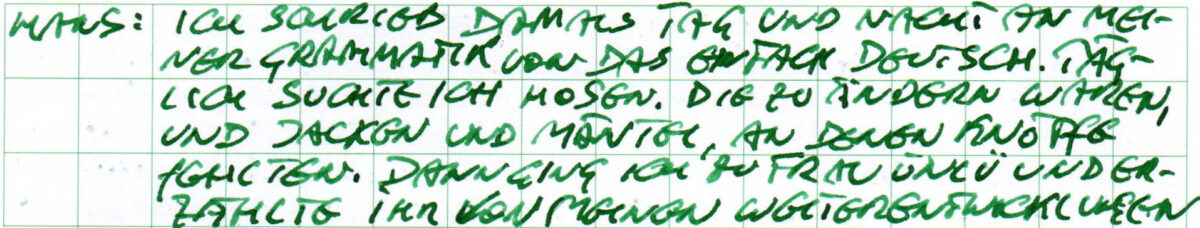 HANS: ICH SCHRIEB DAMALS TAG UND NACHT AN MEI-
NER GRAMMATIK VON DAS EINFACH DEUTSCH. TÄG-
LICH SUCHTE ICH HOSEN. DIE ZU ÄNDERN WAREN,
UND JACKEN UND MÄNTEL, AN DENEN KNÖPFE
FEHLTEN. DANN GING ICH ZU FRAU ÜNLÜ UND ER-
ZÄHLTE IHR VON MEINEN WEITERENTWICKLUNGEN